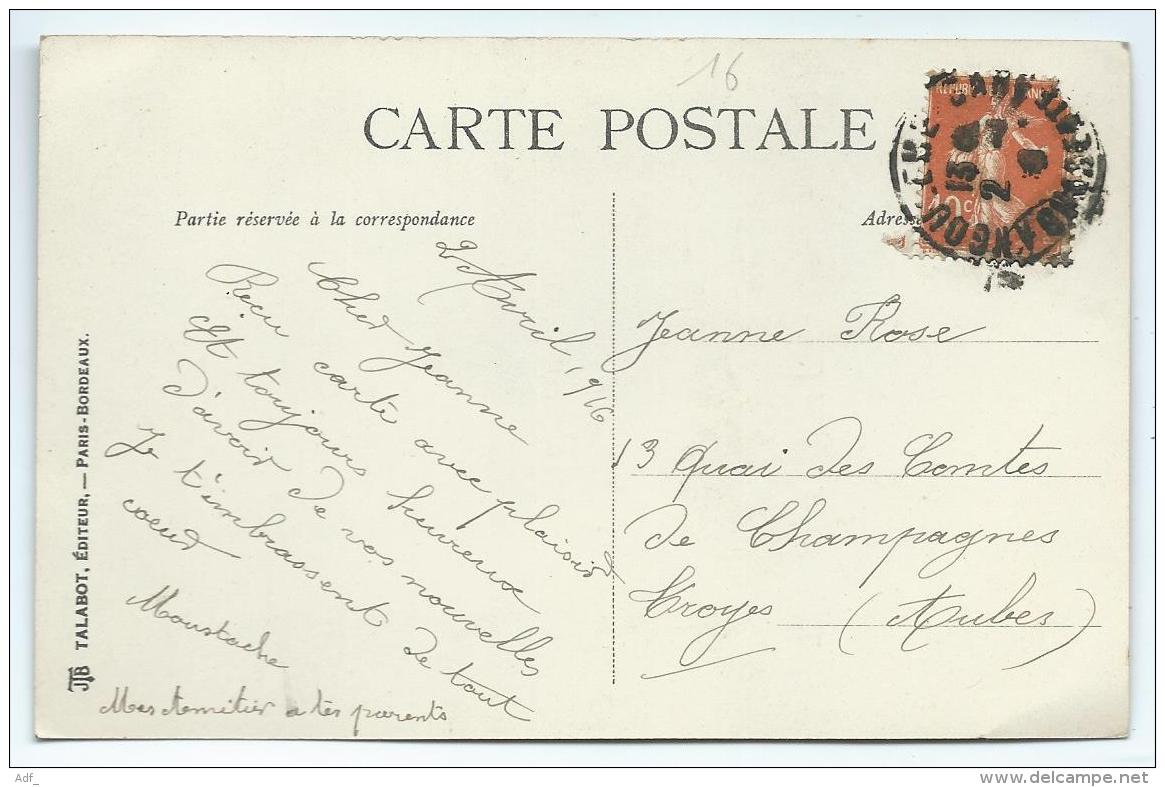 16
CARTE POSTALE
Partie réservée à la correspondance
Adresse
2 Avril, 916
Cher Jeanne
Reçu carte avec plaisir
Et toujours heureux
d'avoir de vos nouvelles
Je t'imbrassent de tout
coeur
Moustache
a tes parents
Jeanne Rose
13 Quai des Comtes
de Champagnes
Troyes (Aubes)
10c
TALABOT, ÉDITEUR, — PARIS-BORDEAUX.
Adf_
www.delcampe.net